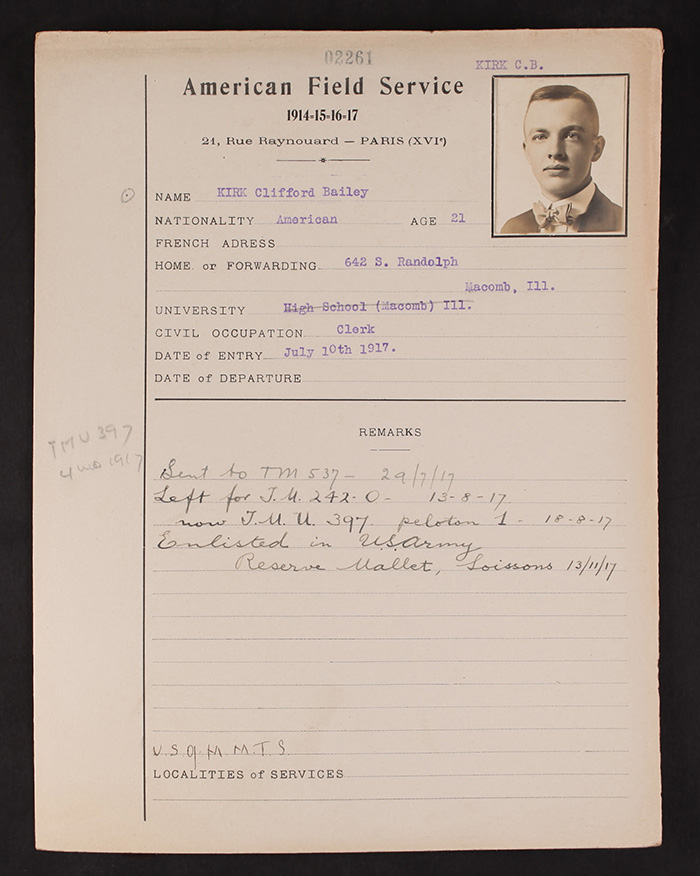 02261
KIRK C.B.
American Field Service
1914-15-16-17
21, Rue Raynouard — PARIS (XVIe)
NAME KIRK Clifford Bailey
NATIONALITY American AGE 21
FRENCH ADRESS
HOME or FORWARDING 642 S. Randolph
Macomb, Ill.
UNIVERSITY High School (Macomb) Ill.
CIVIL OCCUPATION Clerk
DATE of ENTRY July 10th 1917.
DATE of DEPARTURE
REMARKS
TMU 397
4 mos 1917
Sent to TM 537 - 29/7/17
Left for T.M. 242-O - 13-8-17
now T.M.U. 397. peloton 1 - 18-8-17
Enlisted in U.S. Army
Reserve Mallet, Soissons 13/11/17
U.S.Q.M.M.T.S.
LOCALITIES of SERVICES